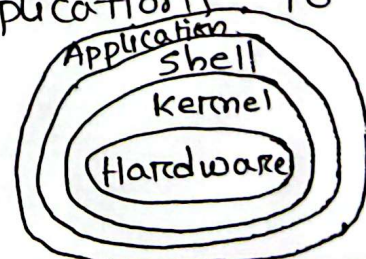 Application
Shell
Kernel
Hardware